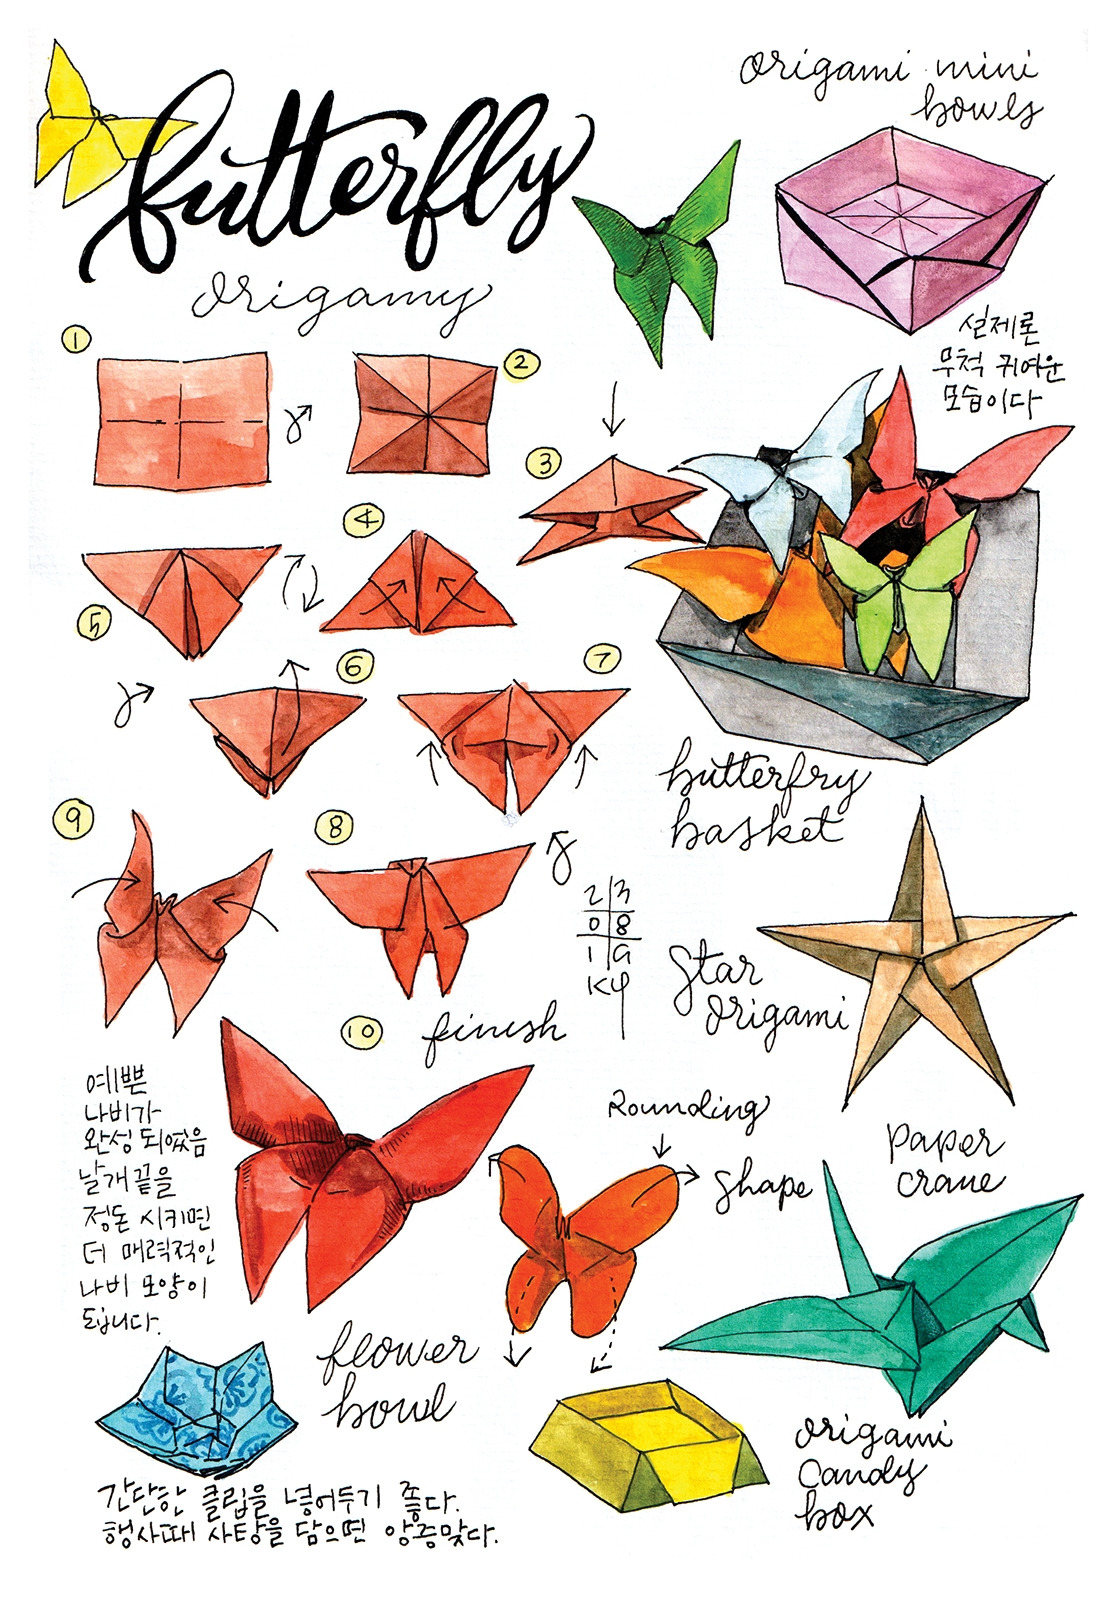 butterfly
origamy
origami mini
bowls
실제론
무척 귀여운
모습이다
1
2
3
4
5
6
7
8
9
butterfry
basket
23
08
19
KY
Star
origami
10
finish
예쁜
나비가
완성 되었음
날개 끝을
정돈 시키면
더 매력적인
나비 모양이
됩니다.
Rounding
shape
paper
crane
flower
bowl
origami
candy
box
간단한 클립을 넣어두기 좋다.
행사때 사탕을 담으면 앙증맞다.